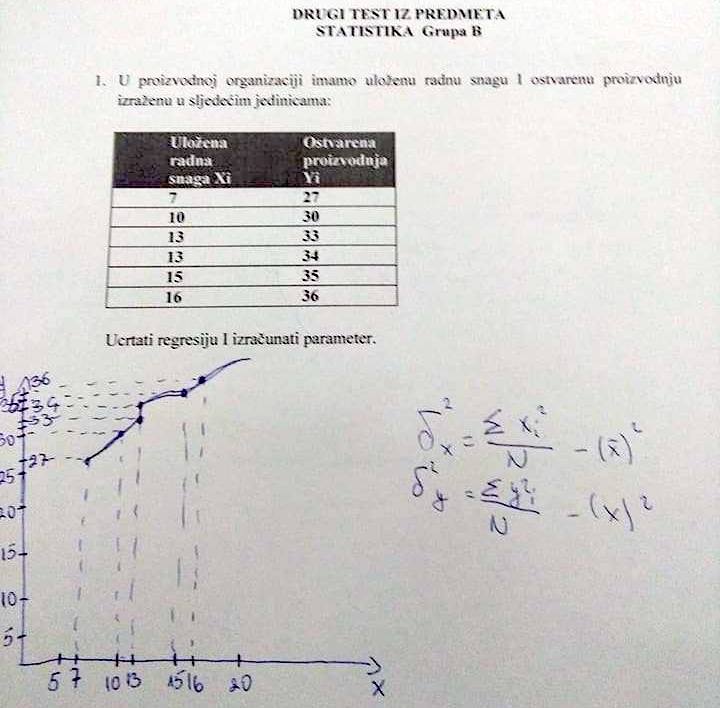 DRUGI TEST IZ PREDMETA
STATISTIKA Grupa B
1. U proizvodnoj organizaciji imamo uloženu radnu snagu I ostvarenu proizvodnju
izraženu u sljedećim jedinicama:
Uložena radna snaga Xi Ostvarena proizvodnja Yi
7 27
10 30
13 33
13 34
15 35
16 36
Ucrtati regresiju I izračunati parameter.
36
34
33
30
27
25
20
15
10
5
5 7 10 13 15 16 20
X
δ²x = Σ xi² / N - (x̄)²
δ²y = Σ yi² / N - (x)²